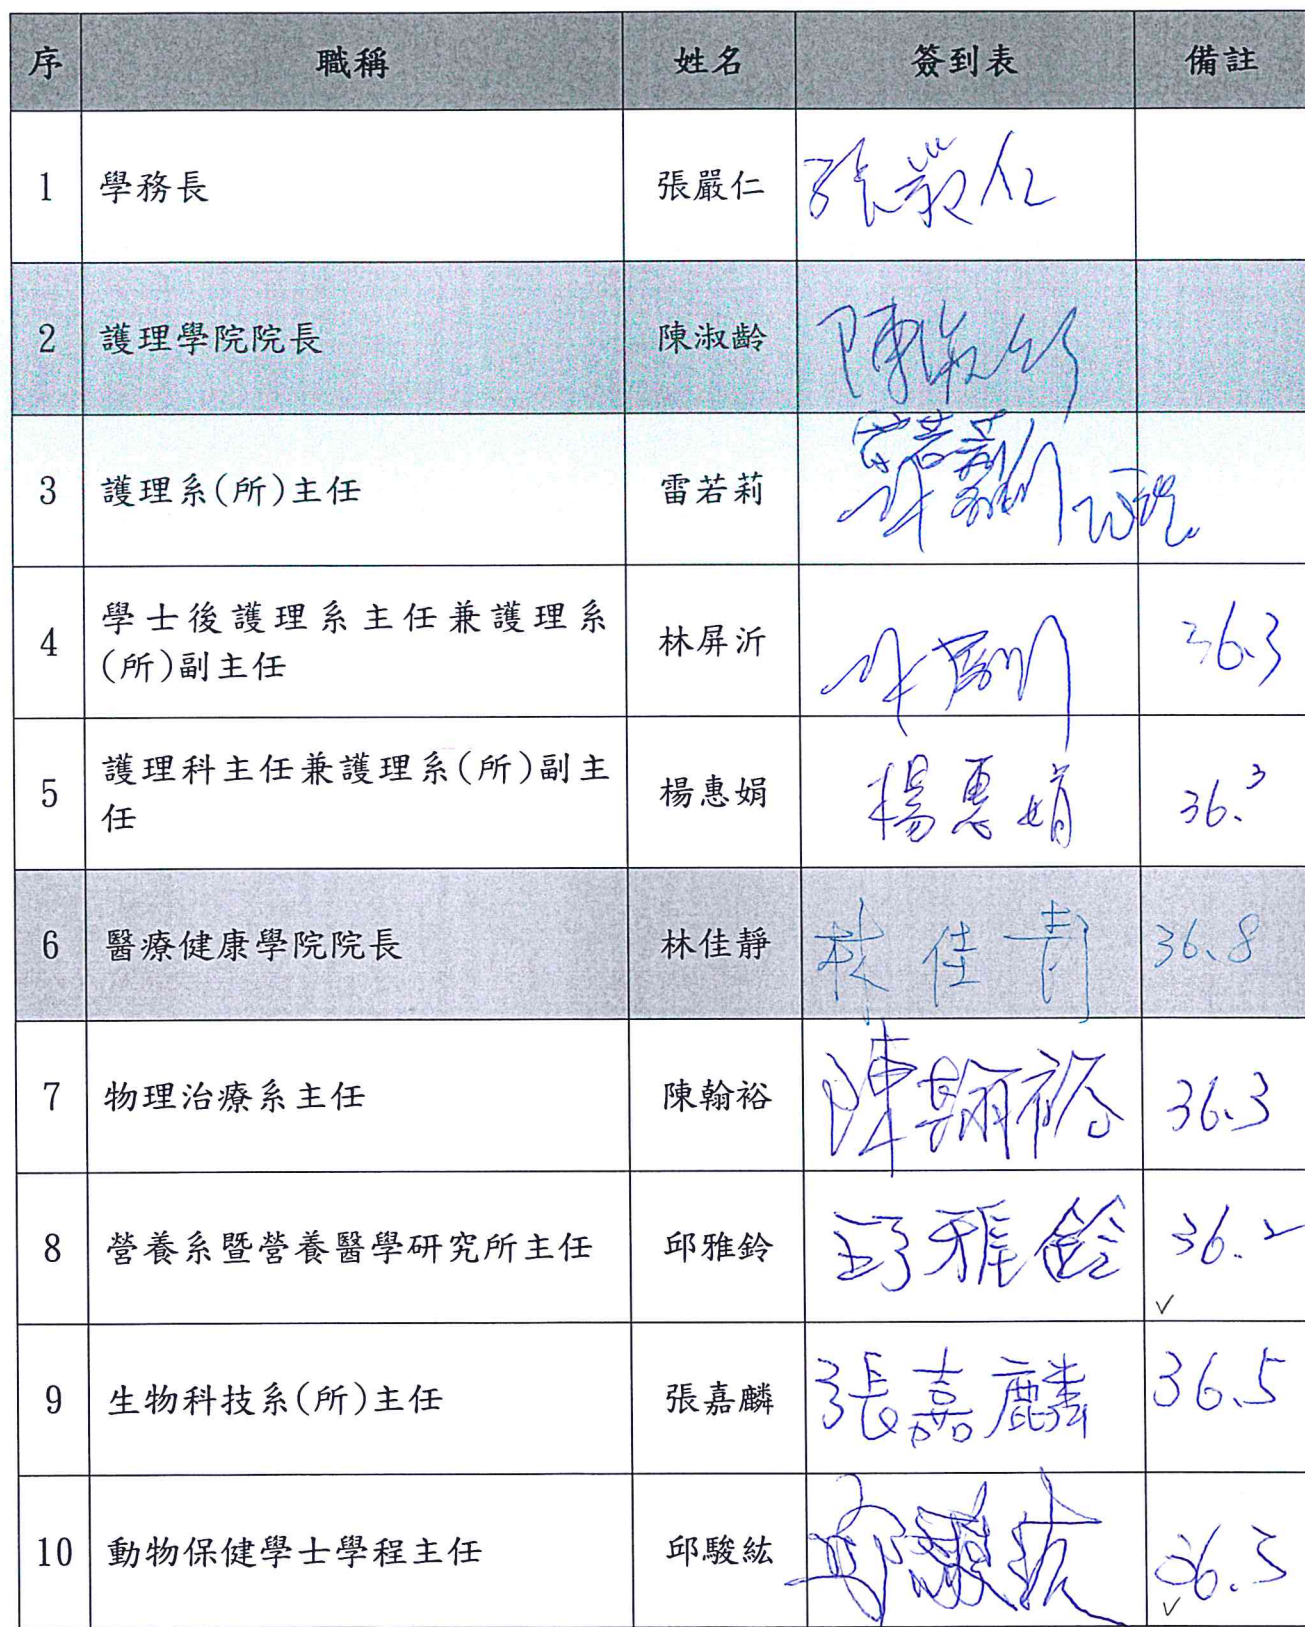 序 職稱 姓名 簽到表 備註
1 學務長 張嚴仁 張嚴仁
2 護理學院院長 陳淑齡 陳淑齡
3 護理系(所)主任 雷若莉 雷若莉
4 學士後護理系主任兼護理系
(所)副主任 林屏沂 36.3
5 護理科主任兼護理系(所)副主
任 楊惠娟 楊惠娟 36.3
6 醫療健康學院院長 林佳靜 林佳靜 36.8
7 物理治療系主任 陳翰裕 陳翰裕 36.3
8 營養系暨營養醫學研究所主任 邱雅鈴 邱雅鈴 36.2
9 生物科技系(所)主任 張嘉麟 張嘉麟 36.5
10 動物保健學士學程主任 邱駿紘 邱駿紘 36.5